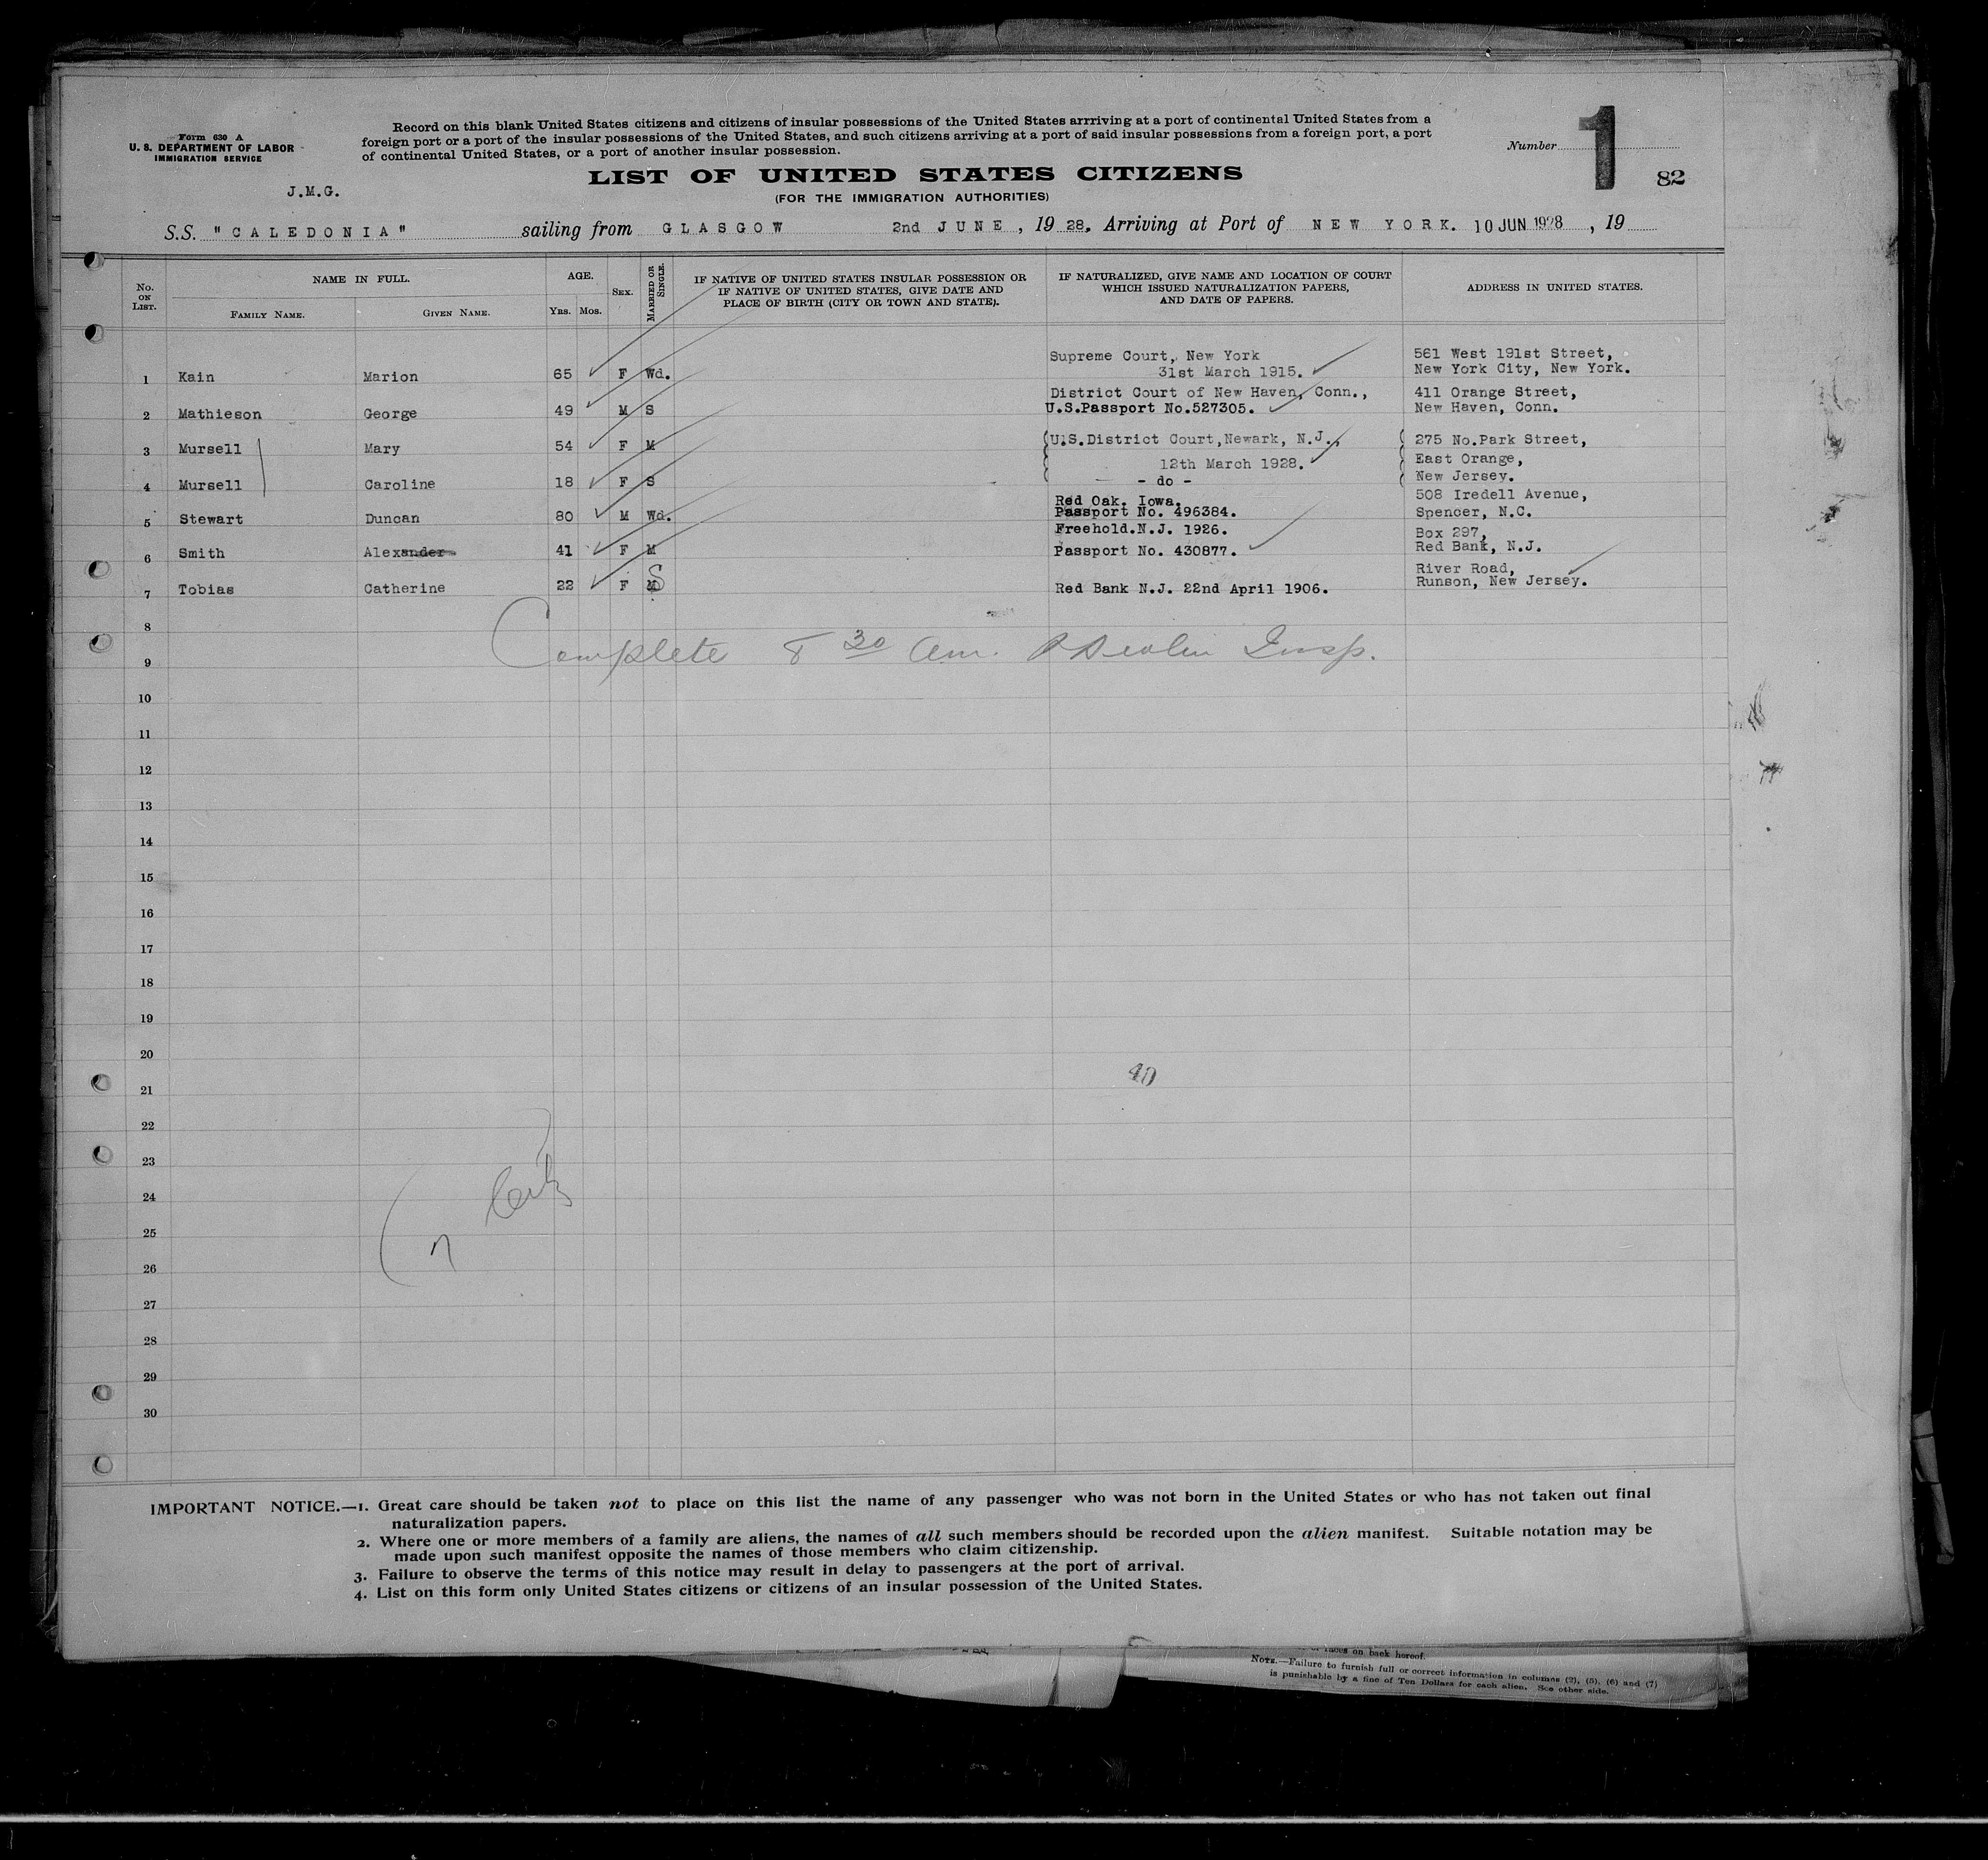 Form 630 A
U. S. DEPARTMENT OF LABOR
IMMIGRATION SERVICE
J.M.G.
Record on this blank United States citizens and citizens of insular possessions of the United States arrriving at a port of continental United States from a
foreign port or a port of the insular possessions of the United States, and such citizens arriving at a port of said insular possessions from a foreign port, a port
of continental United States, or a port of another insular possession.
Number 1
82
LIST OF UNITED STATES CITIZENS
(FOR THE IMMIGRATION AUTHORITIES)
S.S. "CALEDONIA" sailing from GLASGOW 2nd JUNE, 19 28. Arriving at Port of NEW YORK. 10 JUN 1928, 19
No. ON LIST.
NAME IN FULL.
FAMILY NAME.
GIVEN NAME.
AGE.
YRS. MOS.
SEX.
MARRIED OR SINGLE.
IF NATIVE OF UNITED STATES INSULAR POSSESSION OR
IF NATIVE OF UNITED STATES, GIVE DATE AND
PLACE OF BIRTH (CITY OR TOWN AND STATE).
IF NATURALIZED, GIVE NAME AND LOCATION OF COURT
WHICH ISSUED NATURALIZATION PAPERS,
AND DATE OF PAPERS.
ADDRESS IN UNITED STATES.
Supreme Court, New York 561 West 191st Street,
1 Kain Marion 65 F Wd. 31st March 1915. New York City, New York.
District Court of New Haven, Conn., 411 Orange Street,
2 Mathieson George 49 M S U.S.Passport No.527305. New Haven, Conn.
3 Mursell Mary 54 F M U.S.District Court,Newark, N.J., 275 No.Park Street,
12th March 1928. East Orange,
4 Mursell Caroline 18 F S - do - New Jersey.
Red Oak. Iowa. 508 Iredell Avenue,
5 Stewart Duncan 80 M Wd. Passport No. 496384. Spencer, N.C.
Freehold.N.J. 1926. Box 297,
6 Smith Alexander 41 F M Passport No. 430877. Red Bank, N.J.
River Road,
7 Tobias Catherine 22 F M S Red Bank N.J. 22nd April 1906. Runson, New Jersey.
8
Complete 8 30 am. Insp.
9
10
11
12
13
14
15
16
17
18
19
20
40
21
22
23
24
25
26
27
28
29
30
IMPORTANT NOTICE.—1. Great care should be taken not to place on this list the name of any passenger who was not born in the United States or who has not taken out final
naturalization papers.
2. Where one or more members of a family are aliens, the names of all such members should be recorded upon the alien manifest. Suitable notation may be
made upon such manifest opposite the names of those members who claim citizenship.
3. Failure to observe the terms of this notice may result in delay to passengers at the port of arrival.
4. List on this form only United States citizens or citizens of an insular possession of the United States.
of races on back hereof.
NOTE.—Failure to furnish full or correct information in columns (2), (5), (6) and (7)
is punishable by a fine of Ten Dollars for each alien. See other side.